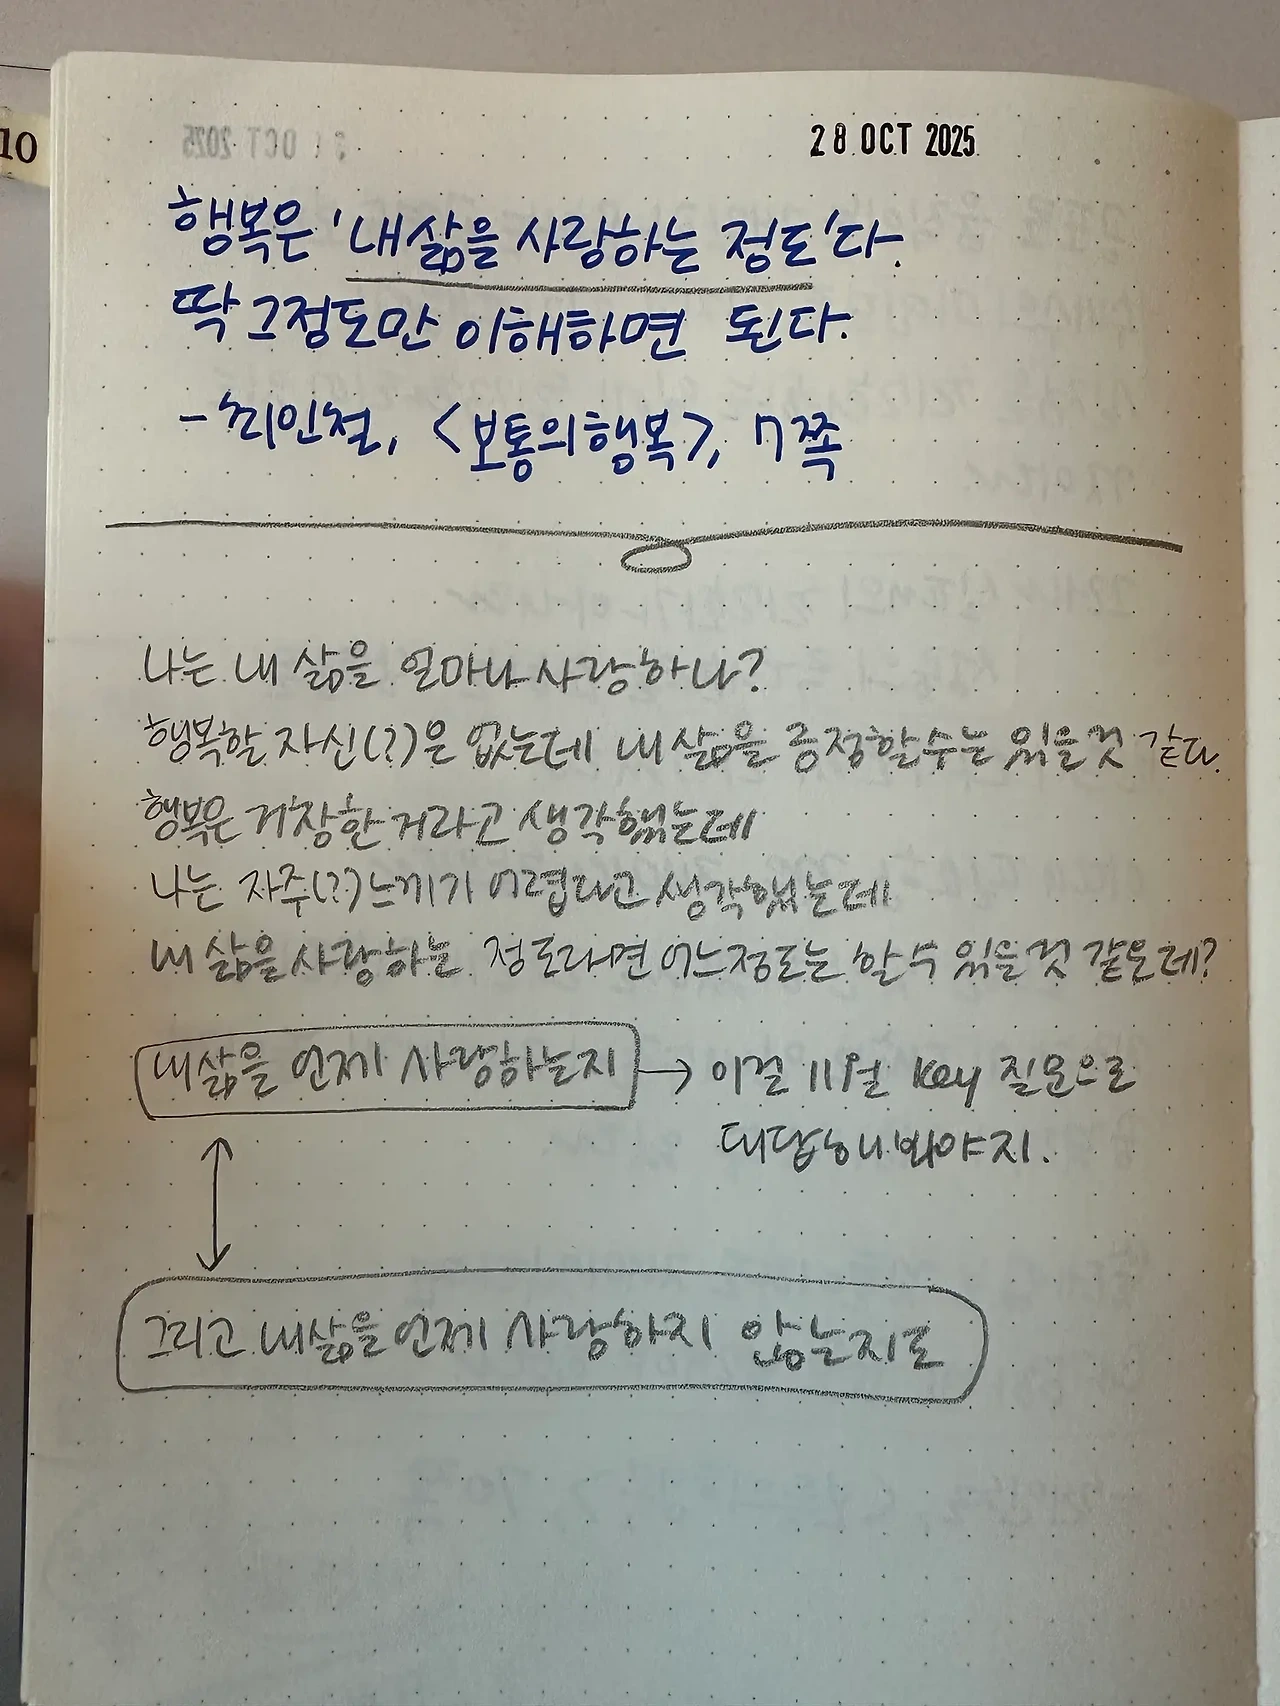 10
28 OCT 2025
행복은 '내 삶을 사랑하는 정도'다.
딱 그정도만 이해하면 된다.
- 최인철, <보통의 행복>, 7쪽
나는 내 삶을 얼마나 사랑하나?
행복할 자신(?)은 없는데 내 삶을 긍정할 수는 있을 것 같다.
행복은 거창한 거라고 생각했는데
나는 자주(?) 느끼기 어렵다고 생각했는데
내 삶을 사랑하는 정도라면 어느정도는 할 수 있을 것 같은데?
내 삶을 언제 사랑하는지 → 이걸 11월 key 질문으로
대답해봐야지.
그리고 내 삶을 언제 사랑하지 않는지도